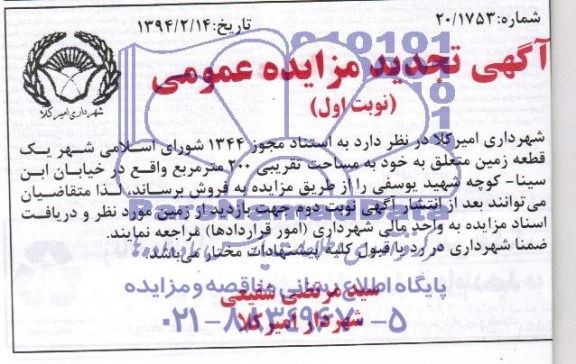 شماره: ۲۰/۱۷۵۳
تاریخ: ۱۳۹۴/۲/۱۴
شهرداری امیرکلا
آگهی تجدید مزایده عمومی
(نوبت اول)
شهرداری امیرکلا در نظر دارد به استناد مجوز ۱۳۴۴ شورای اسلامی شهر یک
قطعه زمین متعلق به خود به مساحت تقریبی ۲۰۰ مترمربع واقع در خیابان ابن
سینا- کوچه شهید یوسفی را از طریق مزایده به فروش برساند، لذا متقاضیان
می‌توانند بعد از انتشار آگهی نوبت دوم جهت بازدید از زمین مورد نظر و دریافت
اسناد مزایده به واحد مالی شهرداری (امور قراردادها) مراجعه نمایند.
ضمنا شهرداری در رد یا قبول کلیه پیشنهادات مختار می‌باشد.
ParsNamadData
پایگاه اطلاع رسانی مناقصه و مزایده
سید مرتضی شفیعی
شهردار امیرکلا
۰۲۱-۸۸۳۴۹۶۷۰-۵